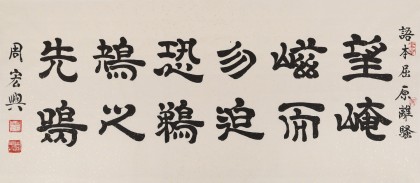 語本屈原離騷
望崦
嵫而
勿迫
恐鵜
鴂之
先鳴
周宏興